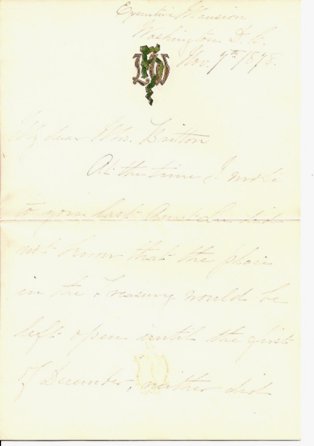 Executive Mansion
Washington D. C.
Nov. 9th 1873.
My dear Mrs. Hinton
At the time I wrote
to your last did
not know that the place
in the Treasury would be
left open until the first
of December, neither did